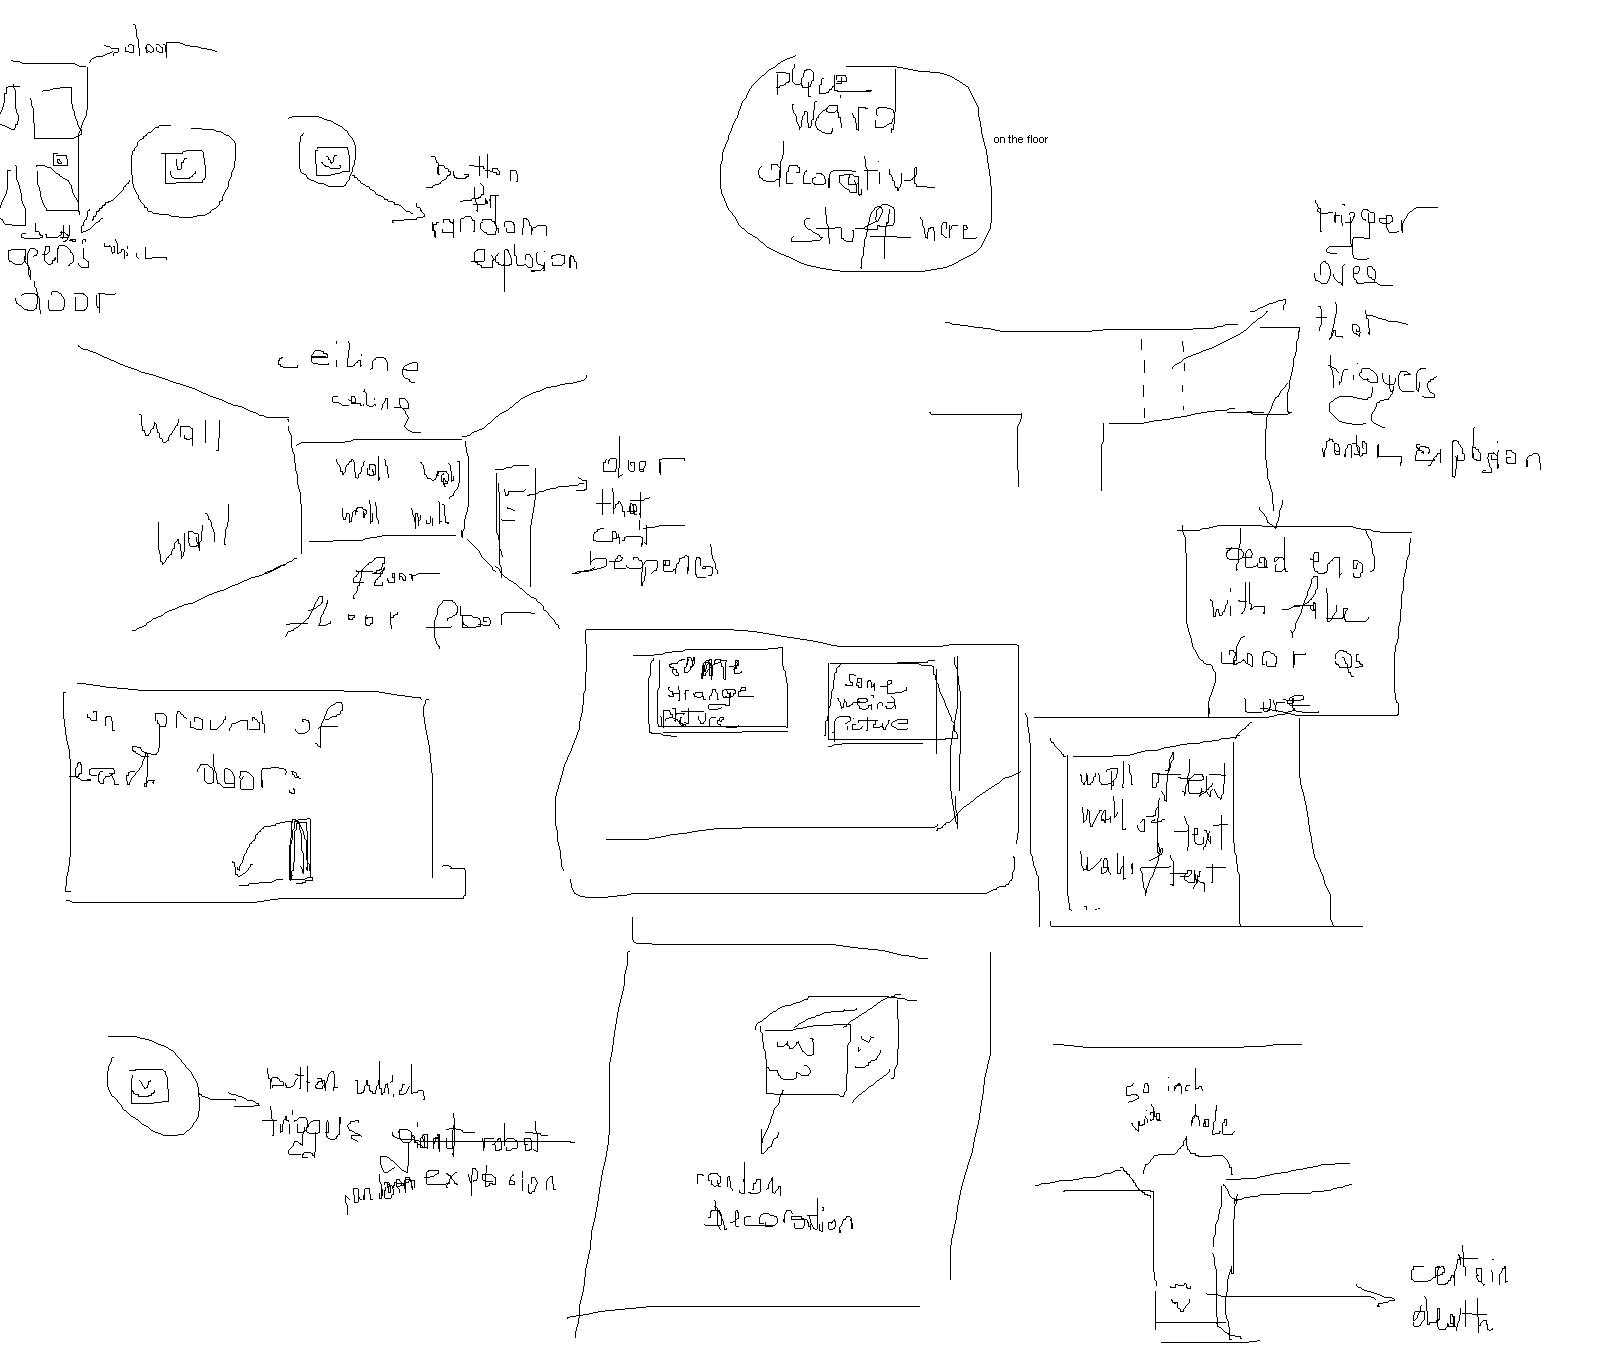 door
button
opens which
door
button
for
random
explosion
place
weird
decorative
stuff here
on the floor
trigger
area
that
triggers
random explosion
ceiling
ceiling
wall
wall
wall wall
wall wall
floor
floor floor
door
that
cant
be opend
dead end
with fake
door as
lure
on ground of
each door:
some
strange
picture
some
weird
picture
wall of text
wall of text
wall of text
...
button which
triggers giant robot
random explosion
random
decoration
50 inch
wide hole
certain
death